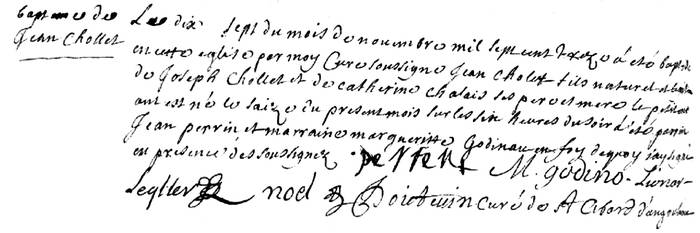 baptesme de
Jean Chollet
Le dix sept du mois de novembre mil sept cent treze a esté baptisé
en cette eglise par moy Curé soussigné Jean Chollet fils naturel et
de Joseph Chollet et de catherine Chalais ses pere et mere le petit
ant est né le saize du present mois sur les six heures du soir
Jean perrin et marraine margueritte Godinau en foy de quoy
en presence des soussignez. perrein M. godino
noel curé de St Cibard d'angoulesme